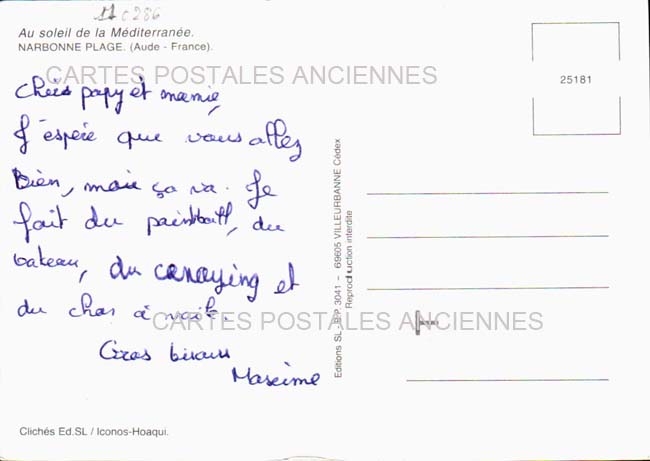 11 c 286
Au soleil de la Méditerranée.
NARBONNE PLAGE. (Aude - France).
CARTES POSTALES ANCIENNES
25181
chèrs papy et mamie,
J'espère que vous allez
Bien, moi ça va. Je
fait du paintball, du
bateau, du canoying et
du char à voile.
CARTES POSTALES ANCIENNES
Gros bisous
Maxime
Editions SL - B.P. 3041 - 69605 VILLEURBANNE Cédex
Reproduction interdite
Clichés Ed.SL / Iconos-Hoaqui.